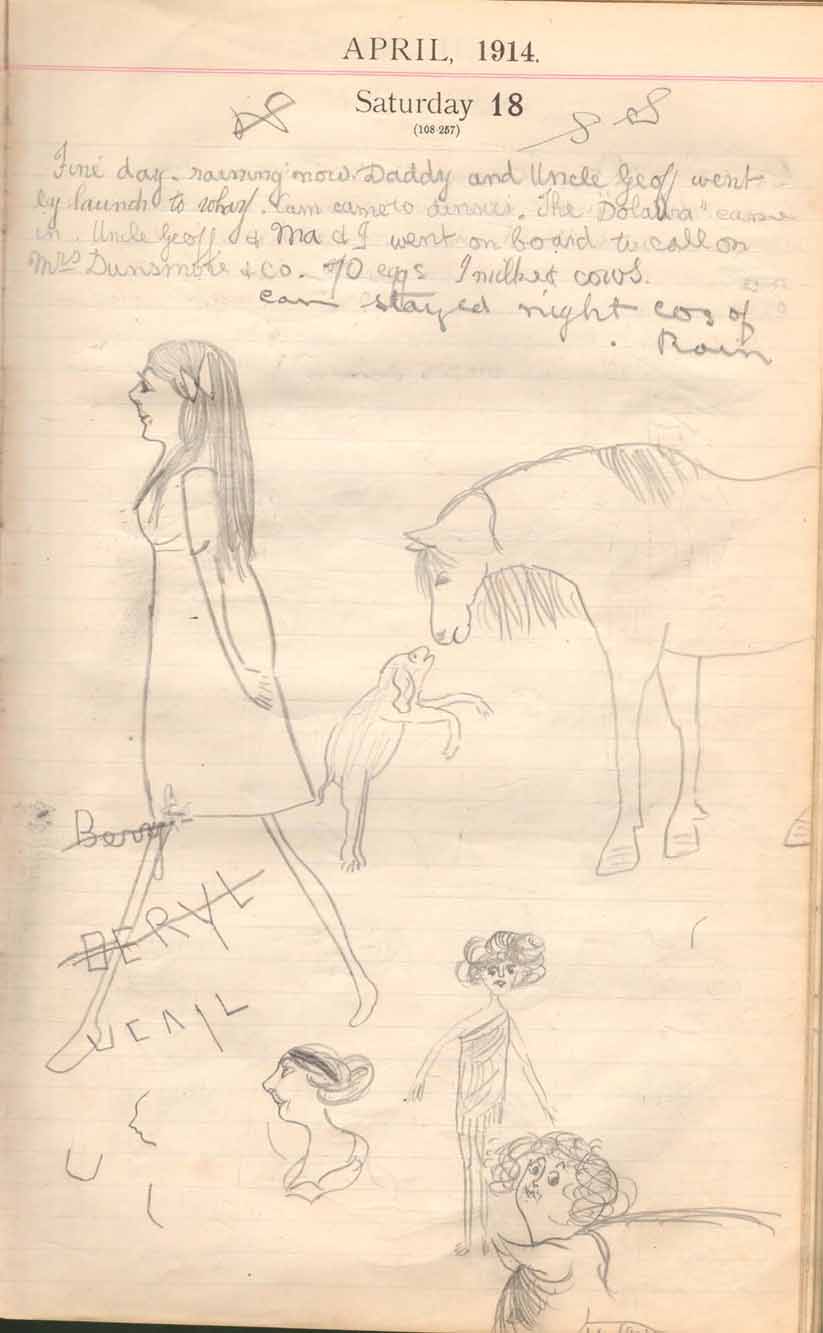 APRIL, 1914.
Saturday 18
(108-257)
Fine day. raining now. Daddy and Uncle Geoff went
by launch to wharf. Cam came to dinner. The "Dolawra" came
in. Uncle Geoff & Ma & I went on board to call on
Mrs Dunsmore & co. 70 eggs I milked cows.
Cam stayed night cos of
Rain
BERYL